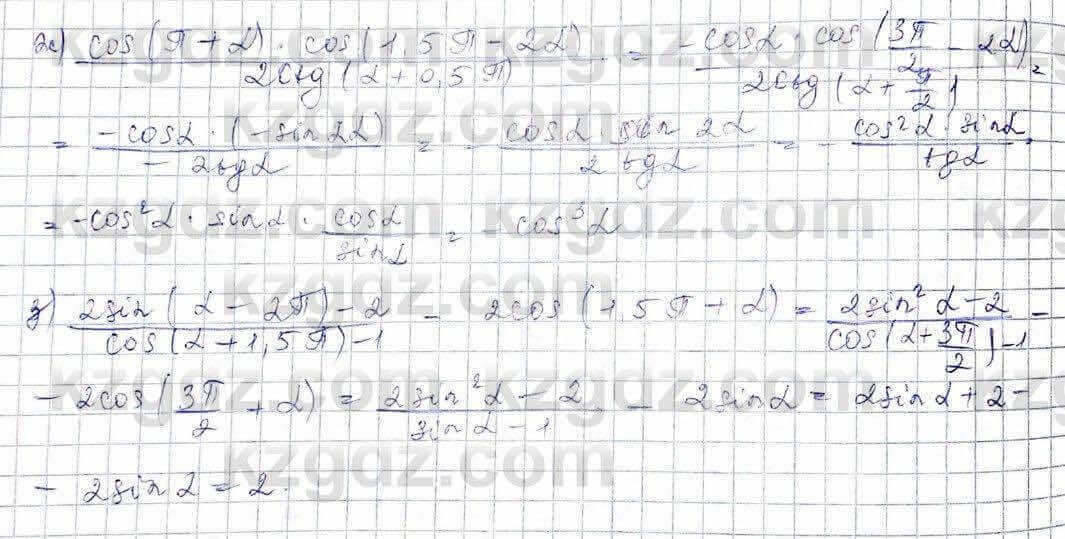 ж) cos(π+α)·cos(1,5π−2α) / 2ctg(α+0,5π) = −cosα·cos(3π/2−2α) / 2ctg(α+π/2) =
= −cosα·(−sin2α) / −2tgα = − cosα·sin2α / 2tgα = − cos²α·sinα / tgα =
= −cos²α·sinα· cosα / sinα = −cos³α
з) 2sin(α−2π)−2 / cos(α+1,5π)−1 − 2cos(1,5π+α) = 2sin²α−2 / cos(α+3π/2)−1 −
− 2cos(3π/2+α) = 2sin²α−2 / sinα−1 − 2sinα = 2sinα+2−
− 2sinα = 2.
kzgdz.com